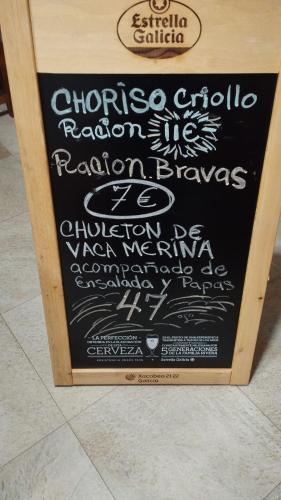 Estrella
Galicia
CHORISO Criollo
Racion 11€
Racion Bravas
7€
CHULETON DE
VACA MERINA
acompañado de
Ensalada y Papas
47
LA PERFECCIÓN
CERVEZA
5 GENERACIONES
DE LA FAMILIA RIVERA
Estrella Galicia
Xacobeo 21·22
Galicia